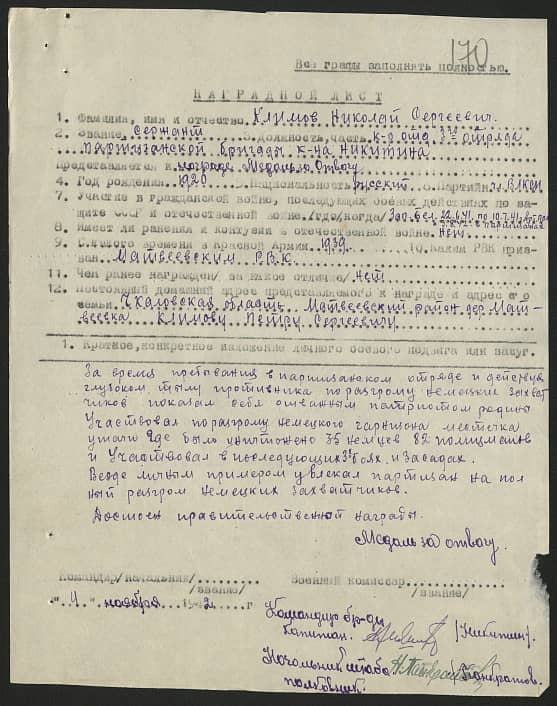 170
Все графы заполнять полностью.
НАГРАДНОЙ ЛИСТ
1. Фамилия, имя и отчество Климов Николай Сергеевич.
2. Звание Сержант 3. Должность, часть к-р отд. 3го отряда
партизанской бригады к-на Никитина
представляется к награде Медаль за Отвагу
4. Год рождения 1920 5. Национальность русский 6. Партийн. чл. ВЛКСМ
7. Участие в гражданской войне, последующих боевых действиях по за-
щите СССР и отечественной войне /где, когда/ Зап. бел. 22.6.41 по 10.7.41
8. Имеет ли ранения и контузии в отечественной войне Нет
9. С какого времени в Красной Армии 1939 10. Каким РВК приз-
ван Матвеевским РВК.
11. Чем ранее награжден /за какое отличие/ Нет
12. Постоянный домашний адрес представляемого к награде и адрес его
семьи Чкаловская область Матвеевский район дер Мат-
веевка Климову Петру Сергеевичу
1. Краткое, конкретное изложение личного боевого подвига или заслуг.
За время пребывания в партизанском отряде и действуя
глубоком тылу противника по разгрому немецких захват
чиков показал себя отважным патриотом родины
Участвовал по разгрому немецкого гарнизона местечка
ушачи где было уничтожено 35 немцев 82 полицманов
и Участвовал в последующих 3х боях. и Засадах.
Везде личным примером увлекал партизан на пол
ный разгром немецких захватчиков.
Достоен правительственной награды.
Медаль за отвагу.
Командир/начальник/.........
/звание/
Военный комиссар.........
/звание/
"4" ноября 1942 г
Командир бр-ды
капитан. /Никитин/.
Начальник штаба /Панкратов.
полковник.